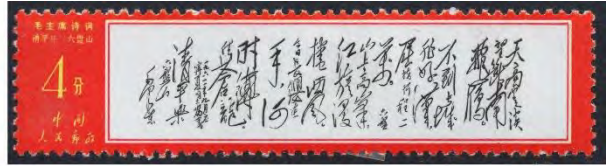 毛主席诗词
清平乐 六盘山
4分
中国
人民邮政
天高云淡
望断南
飞雁
不到长城
非好汉
屈指行程二
万 六盘
山上高峰
红旗漫
卷西风
今日长缨在
手 何
时缚
住苍龙
清平乐
六盘山